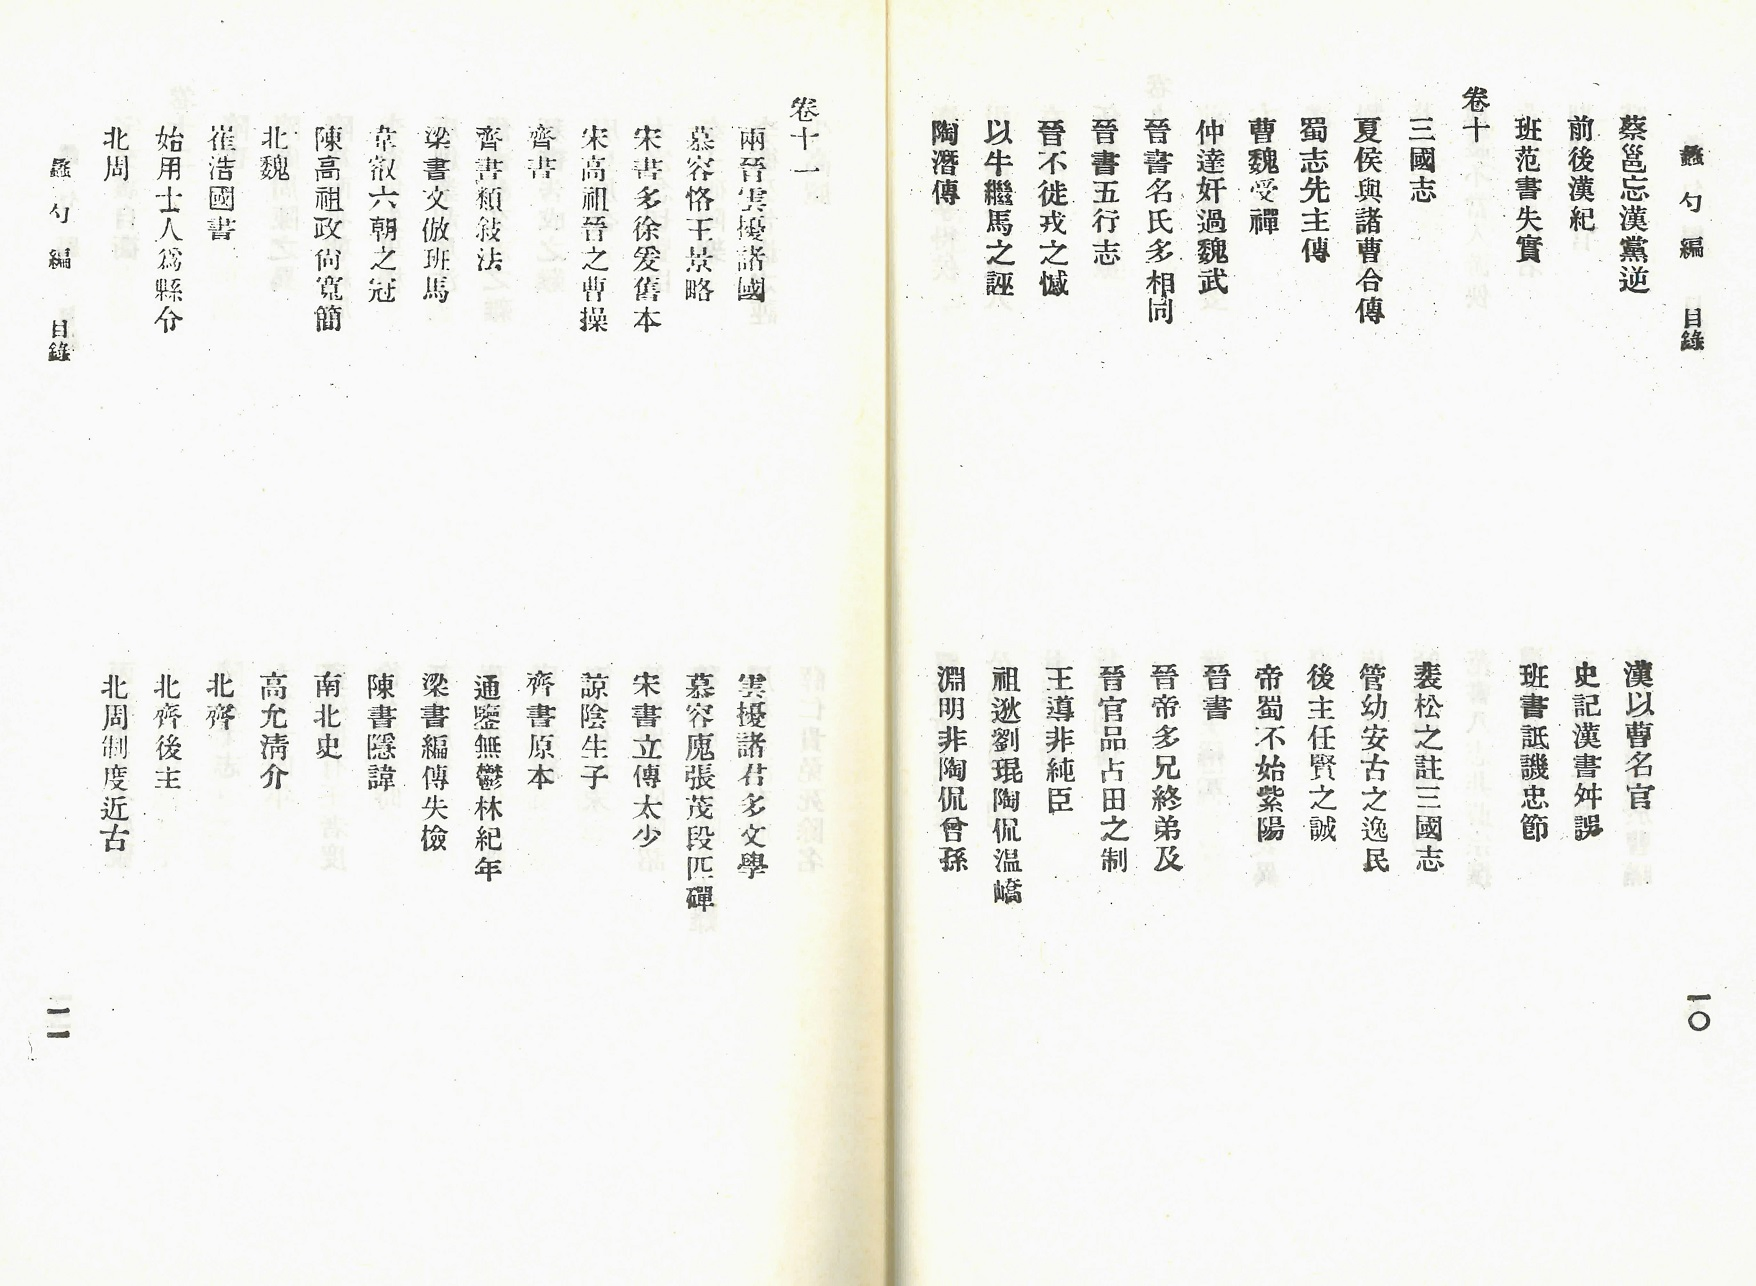 蠡勺編 目錄
一〇
蔡邕忘漢黨逆
漢以曹名官
前後漢紀
史記漢書舛誤
班范書失實
班書詆譏忠節
卷十
三國志
裴松之註三國志
夏侯與諸曹合傳
管幼安古之逸民
蜀志先主傳
後主任賢之誠
曹魏受禪
帝蜀不始紫陽
仲達奸過魏武
晉書
晉書名氏多相同
晉帝多兄終弟及
晉書五行志
晉官品占田之制
晉不徙戎之憾
王導非純臣
以牛繼馬之誣
祖逖劉琨陶侃溫嶠
陶潛傳
淵明非陶侃曾孫
卷十一
兩晉雲擾諸國
雲擾諸君多文學
慕容恪王景略
慕容廆張茂段匹磾
宋書多徐爰舊本
宋書立傳太少
宋高祖晉之曹操
諒陰生子
齊書
齊書原本
齊書類敍法
通鑒無鬱林紀年
梁書文倣班馬
梁書編傳失檢
韋叡六朝之冠
陳書隱諱
陳高祖政尙寬簡
南北史
北魏
高允淸介
崔浩國書
北齊
始用士人爲縣令
北齊後主
北周
北周制度近古
蠡勺編 目錄
一一